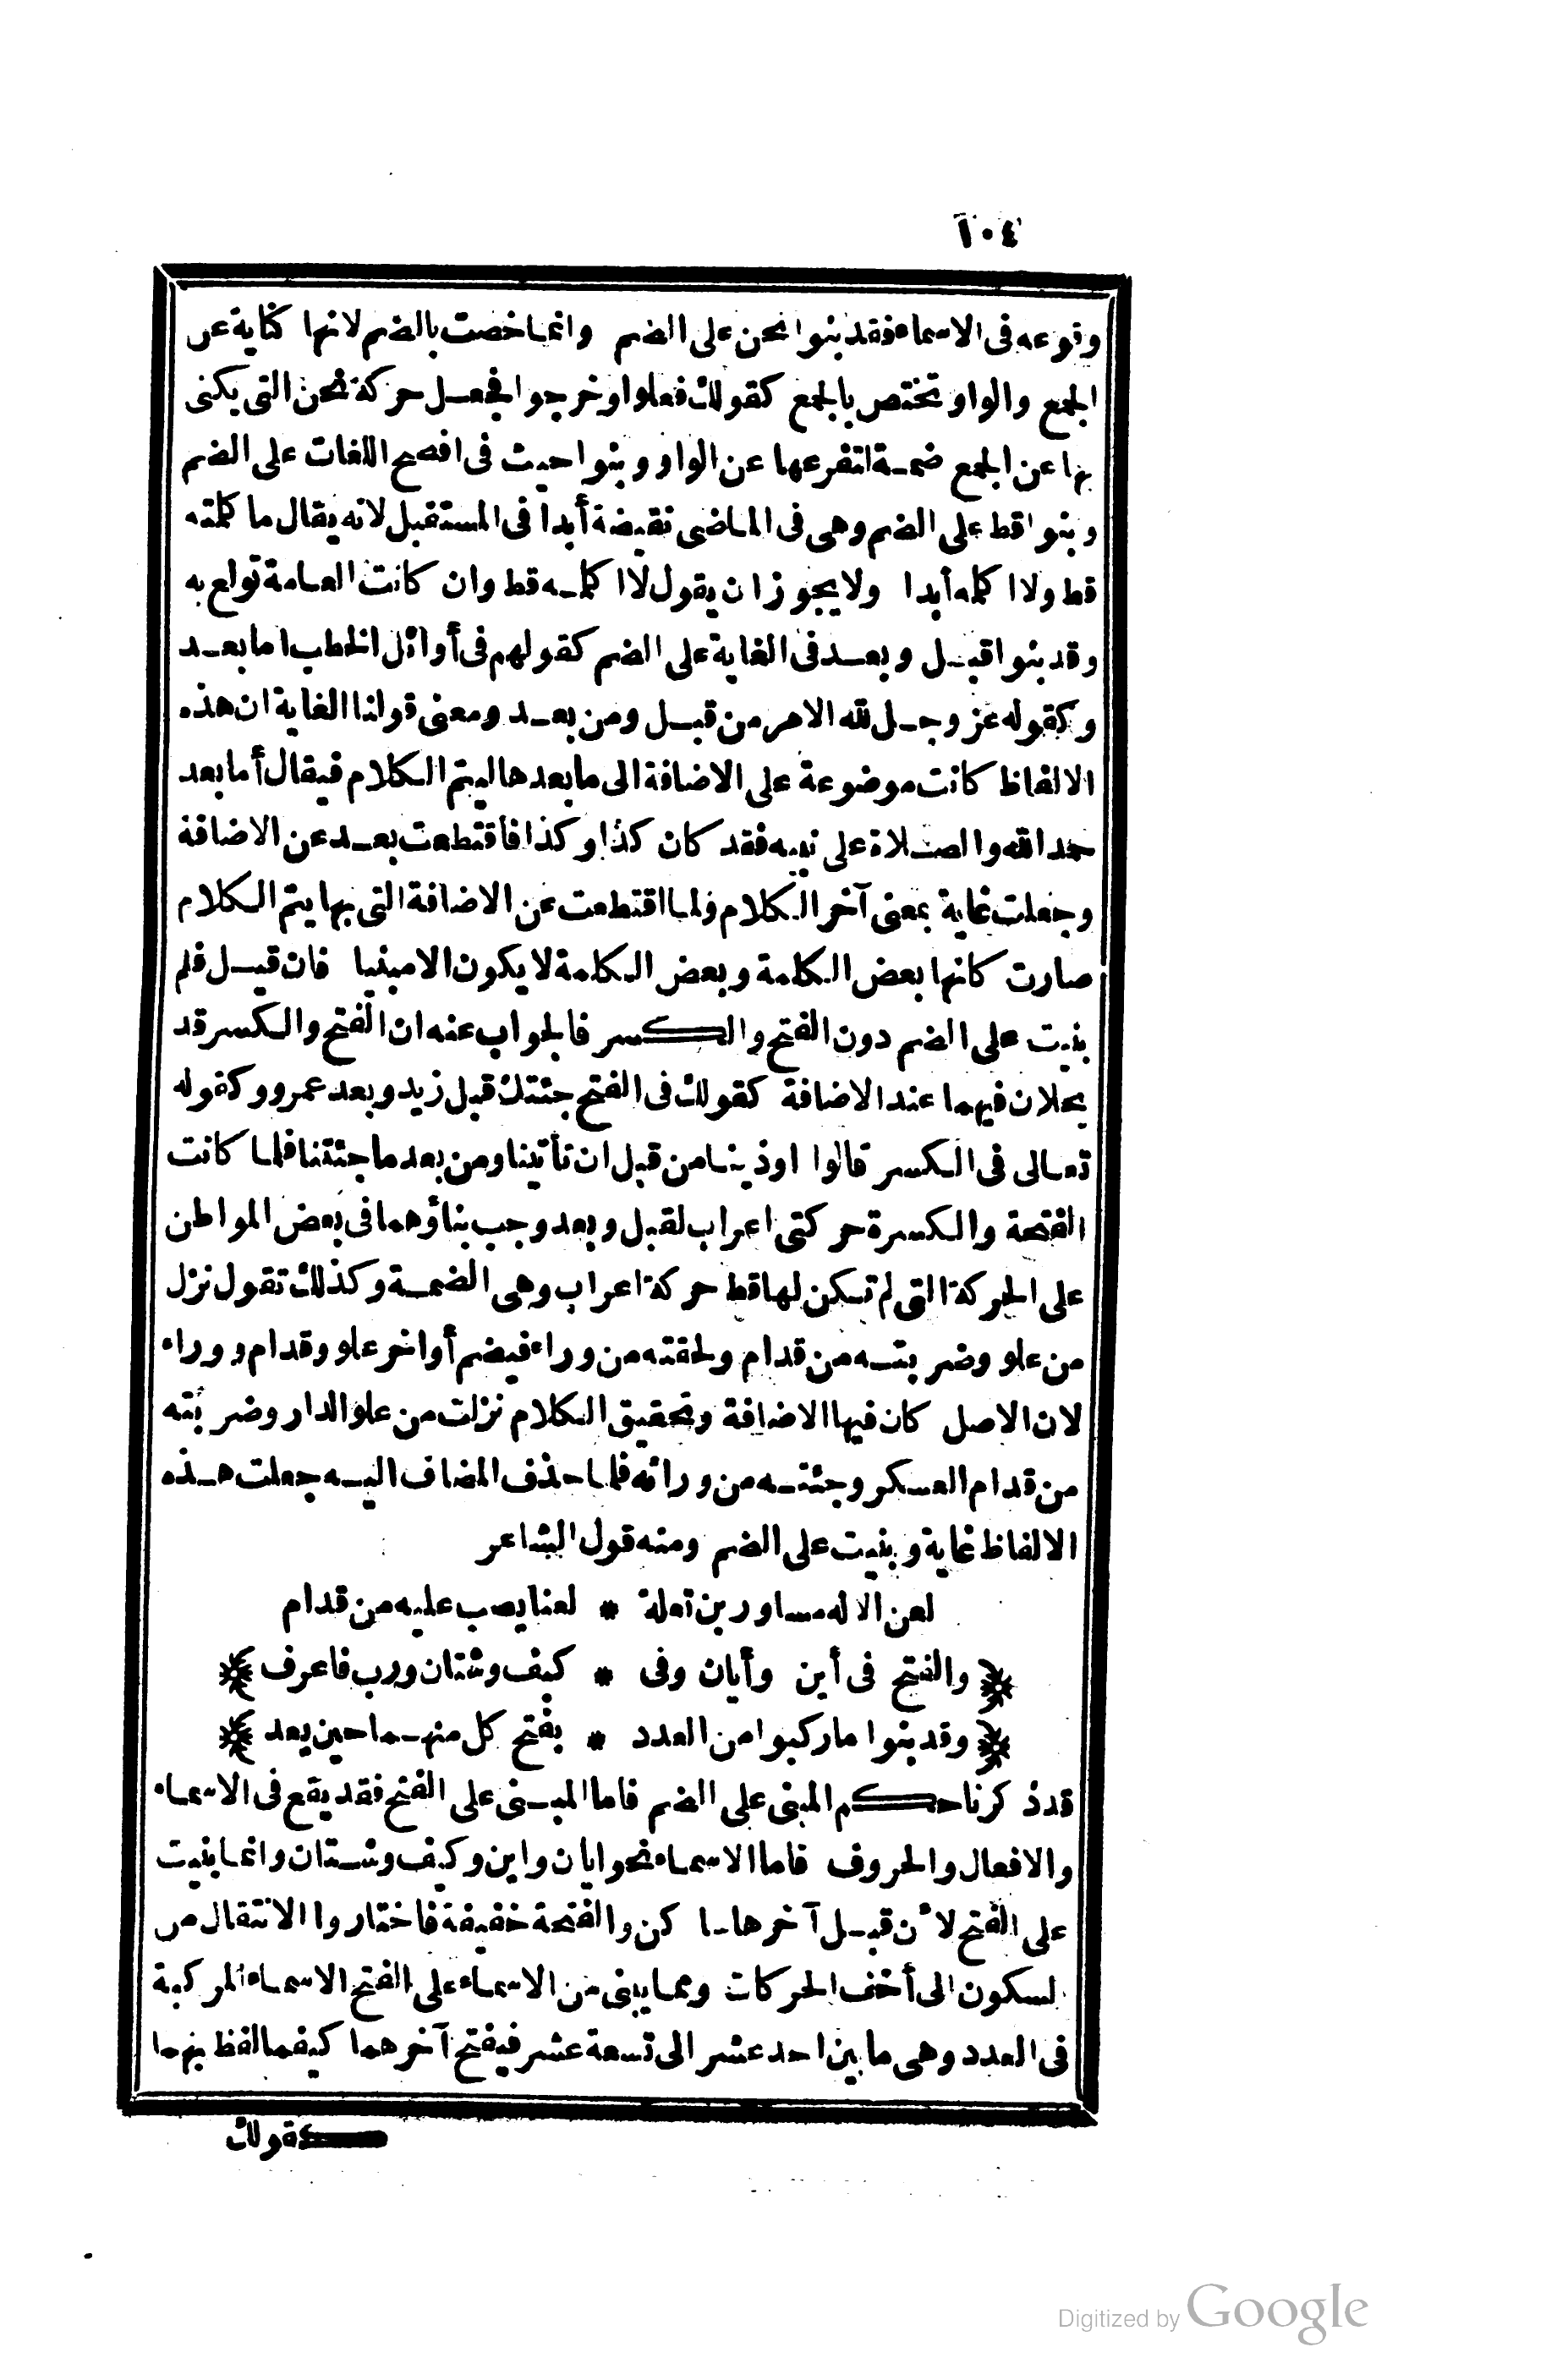 ١٠٤
وقوعه فى الاسماء فقد بنوا نحن على الضم وانما خصت بالضم لانها كناية عن
الجمع والواو تختص بالجمع كقولك فعلوا وخرجوا فجعل حركة نحن التى يكنى
بها عن الجمع ضمة لتفرعها عن الواو وبنوا حيث فى افصح اللغات على الضم
وبنوا قط على الضم وهى فى الماضى نقيضة أبدا فى المستقبل لانه يقال ما كلمته
قط ولا اكلمه أبدا ولا يجوز ان يقول لا اكلمه قط وان كانت العامة تولع به
وقد بنوا قبل وبعد فى الغاية على الضم كقولهم فى أوائل الخطب اما بعد
وكقوله عز وجل لله الامر من قبل ومن بعد ومعنى قولنا الغاية ان هذه
الالفاظ كانت موضوعة على الاضافة الى ما بعدها ليتم الكلام فيقال أما بعد
حمد الله والصلاة على نبيه فقد كان كذا وكذا فاقتطعت بعد عن الاضافة
وجعلت غاية بمعنى آخر الكلام ولما اقتطعت عن الاضافة التى بها يتم الكلام
صارت كانها بعض الكلمة وبعض الكلمة لا يكون الا مبنيا فان قيل فلم
بنيت على الضم دون الفتح والكسر فالجواب عنه ان الفتح والكسر قد
يحلان فيهما عند الاضافة كقولك فى الفتح جئتك قبل زيد وبعد عمرو وكقوله
تعالى فى الكسر قالوا اوذينا من قبل ان تأتينا ومن بعد ما جئتنا فلما كانت
الفتحة والكسرة حركتى اعراب لقبل وبعد وجب بناؤهما فى بعض المواطن
على الحركة التى لم تكن لها قط حركة اعراب وهى الضمة وكذلك تقول نزل
من علو وضربته من قدام ولحقته من وراء فيضم أواخر علو وقدام ووراء
لان الاصل كان فيها الاضافة وتحقيق الكلام نزلت من علو الدار وضربته
من قدام العسكر وجئته من ورائه فلما حذف المضاف اليه جعلت هذه
الالفاظ غاية وبنيت على الضم ومنه قول الشاعر
لعن الاله مساور بن تعلة * لعنا يصب عليه من قدام
والفتح فى أين وأيان وفى * كيف وشتان ورب فاعرف
وقد بنوا ما ركبوا من العدد * بفتح كل منهما حين يعد
قد ذكرنا حكم المبنى على الضم فاما المبنى على الفتح فقد يقع فى الاسماء
والافعال والحروف فاما الاسماء نحو ايان واين وكيف وشتان وانما بنيت
على الفتح لأن قبل آخرها سا كن والفتحة خفيفة فاختاروا الانتقال من
لسكون الى أخف الحركات ومما يبنى من الاسماء على الفتح الاسماء المركبة
فى العدد وهى ما بين احد عشر الى تسعة عشر فيفتح آخرهما كيفما لفظ بهما
كقولك
Digitized by Google